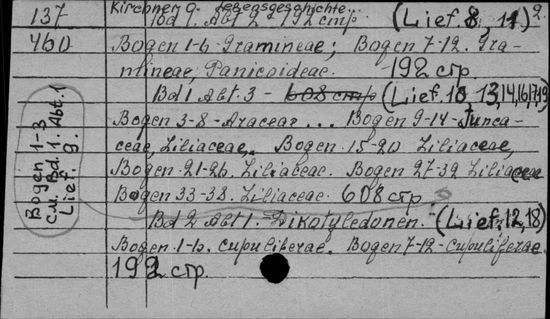 137 Kirchner O. Lebensgeschichte...
Bd 1. Abt 2 192 стр. (Lief. 8, 11) 9.
460 Bogen 1-6 Gramineae; Bogen 7-12. Gra-
mineae, Panicoideae. 192 стр.
Bd 1 Abt. 3 - 608 стр (Lief. 10, 13, 14, 16, 17, 19)
Bogen 3-8 - Araceae ... Bogen 9-14 - Junca-
ceae, Liliaceae,. Bogen 15-20 Liliaceae,
Bogen 21-26. Liliaceae. Bogen 27-32 Liliaceae
Bogen 33-38. Liliaceae. 608 стр.
Bd 2 Abt 1. Dikotyledonen. (Lief. 12, 18)
Bogen 1-6. Cupuliferae. Bogen 7-12 - Cupuliferae.
192 стр.
Bogen 1-3
см. Bd 1. Abt. 1
Lief. 9.